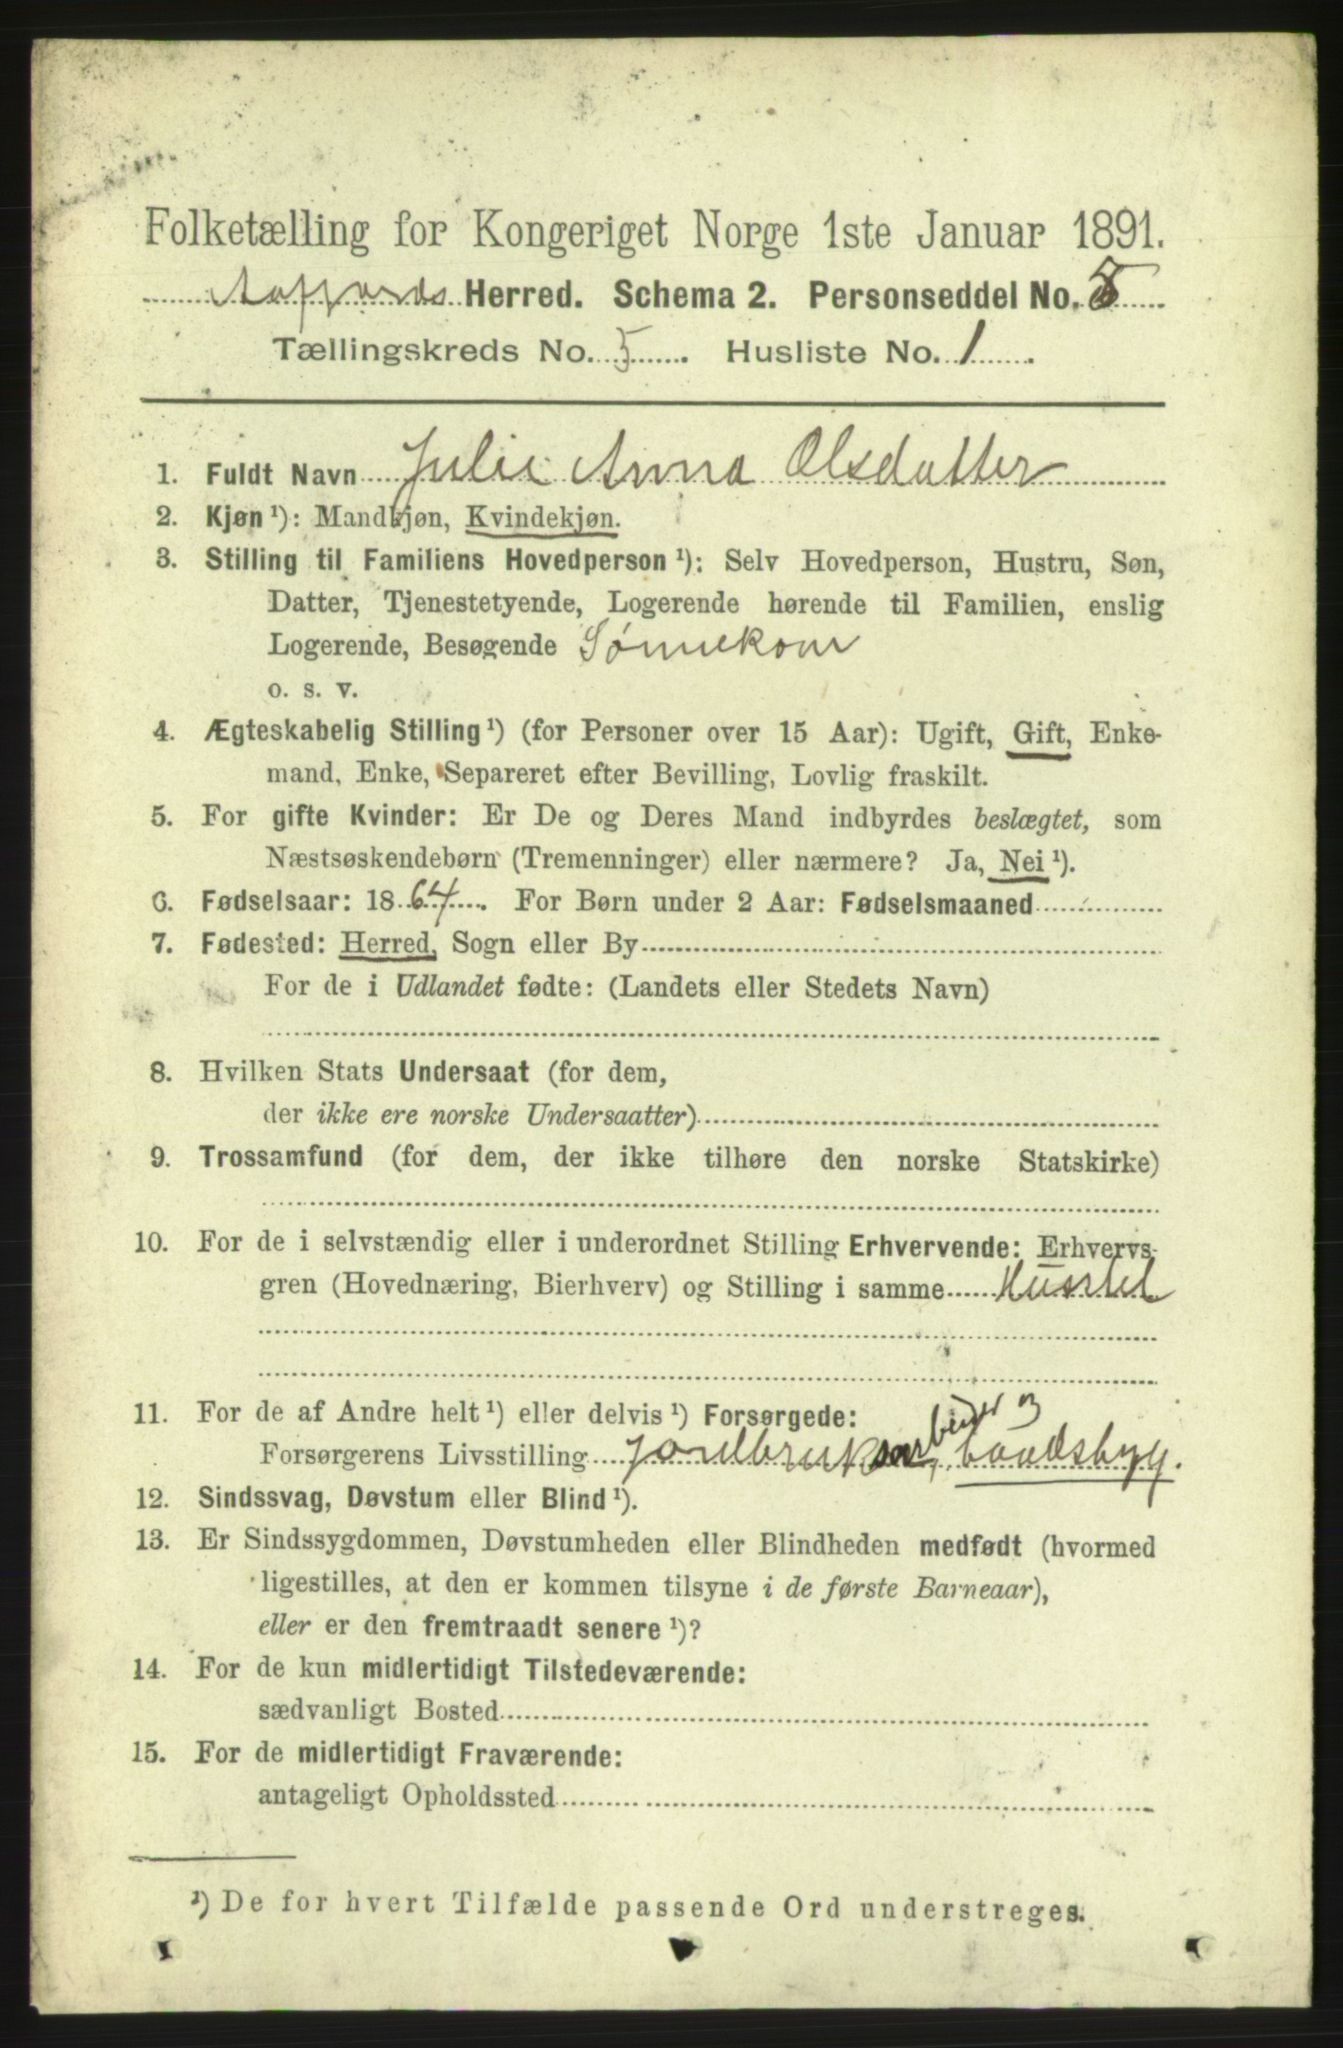 Folketælling for Kongeriget Norge 1ste Januar 1891.
Aafjords Herred. Schema 2. Personseddel No. 5
Tællingskreds No. 5. Husliste No. 1
1. Fuldt Navn Julie Anna Olsdatter
2. Kjøn ¹): Mandkjøn, Kvindekjøn.
3. Stilling til Familiens Hovedperson ¹): Selv Hovedperson, Hustru, Søn,
Datter, Tjenestetyende, Logerende hørende til Familien, enslig
Logerende, Besøgende Sønnekone
o. s. v.
4. Ægteskabelig Stilling ¹) (for Personer over 15 Aar): Ugift, Gift, Enke-
mand, Enke, Separeret efter Bevilling, Lovlig fraskilt.
5. For gifte Kvinder: Er De og Deres Mand indbyrdes beslægtet, som
Næstsøskendebørn (Tremenninger) eller nærmere? Ja, Nei ¹).
6. Fødselsaar: 1864. For Børn under 2 Aar: Fødselsmaaned
7. Fødested: Herred, Sogn eller By
For de i Udlandet fødte: (Landets eller Stedets Navn)
8. Hvilken Stats Undersaat (for dem,
der ikke ere norske Undersaatter)
9. Trossamfund (for dem, der ikke tilhøre den norske Statskirke)
10. For de i selvstændig eller i underordnet Stilling Erhvervende: Erhvervs-
gren (Hovednæring, Bierhverv) og Stilling i samme Husstel
11. For de af Andre helt ¹) eller delvis ¹) Forsørgede:
Forsørgerens Livsstilling Jordbruksarbeider, baadsbyg.
12. Sindssvag, Døvstum eller Blind ¹).
13. Er Sindssygdommen, Døvstumheden eller Blindheden medfødt (hvormed
ligestilles, at den er kommen tilsyne i de første Barneaar),
eller er den fremtraadt senere ¹)?
14. For de kun midlertidigt Tilstedeværende:
sædvanligt Bosted
15. For de midlertidigt Fraværende:
antageligt Opholdssted
¹) De for hvert Tilfælde passende Ord understreges.